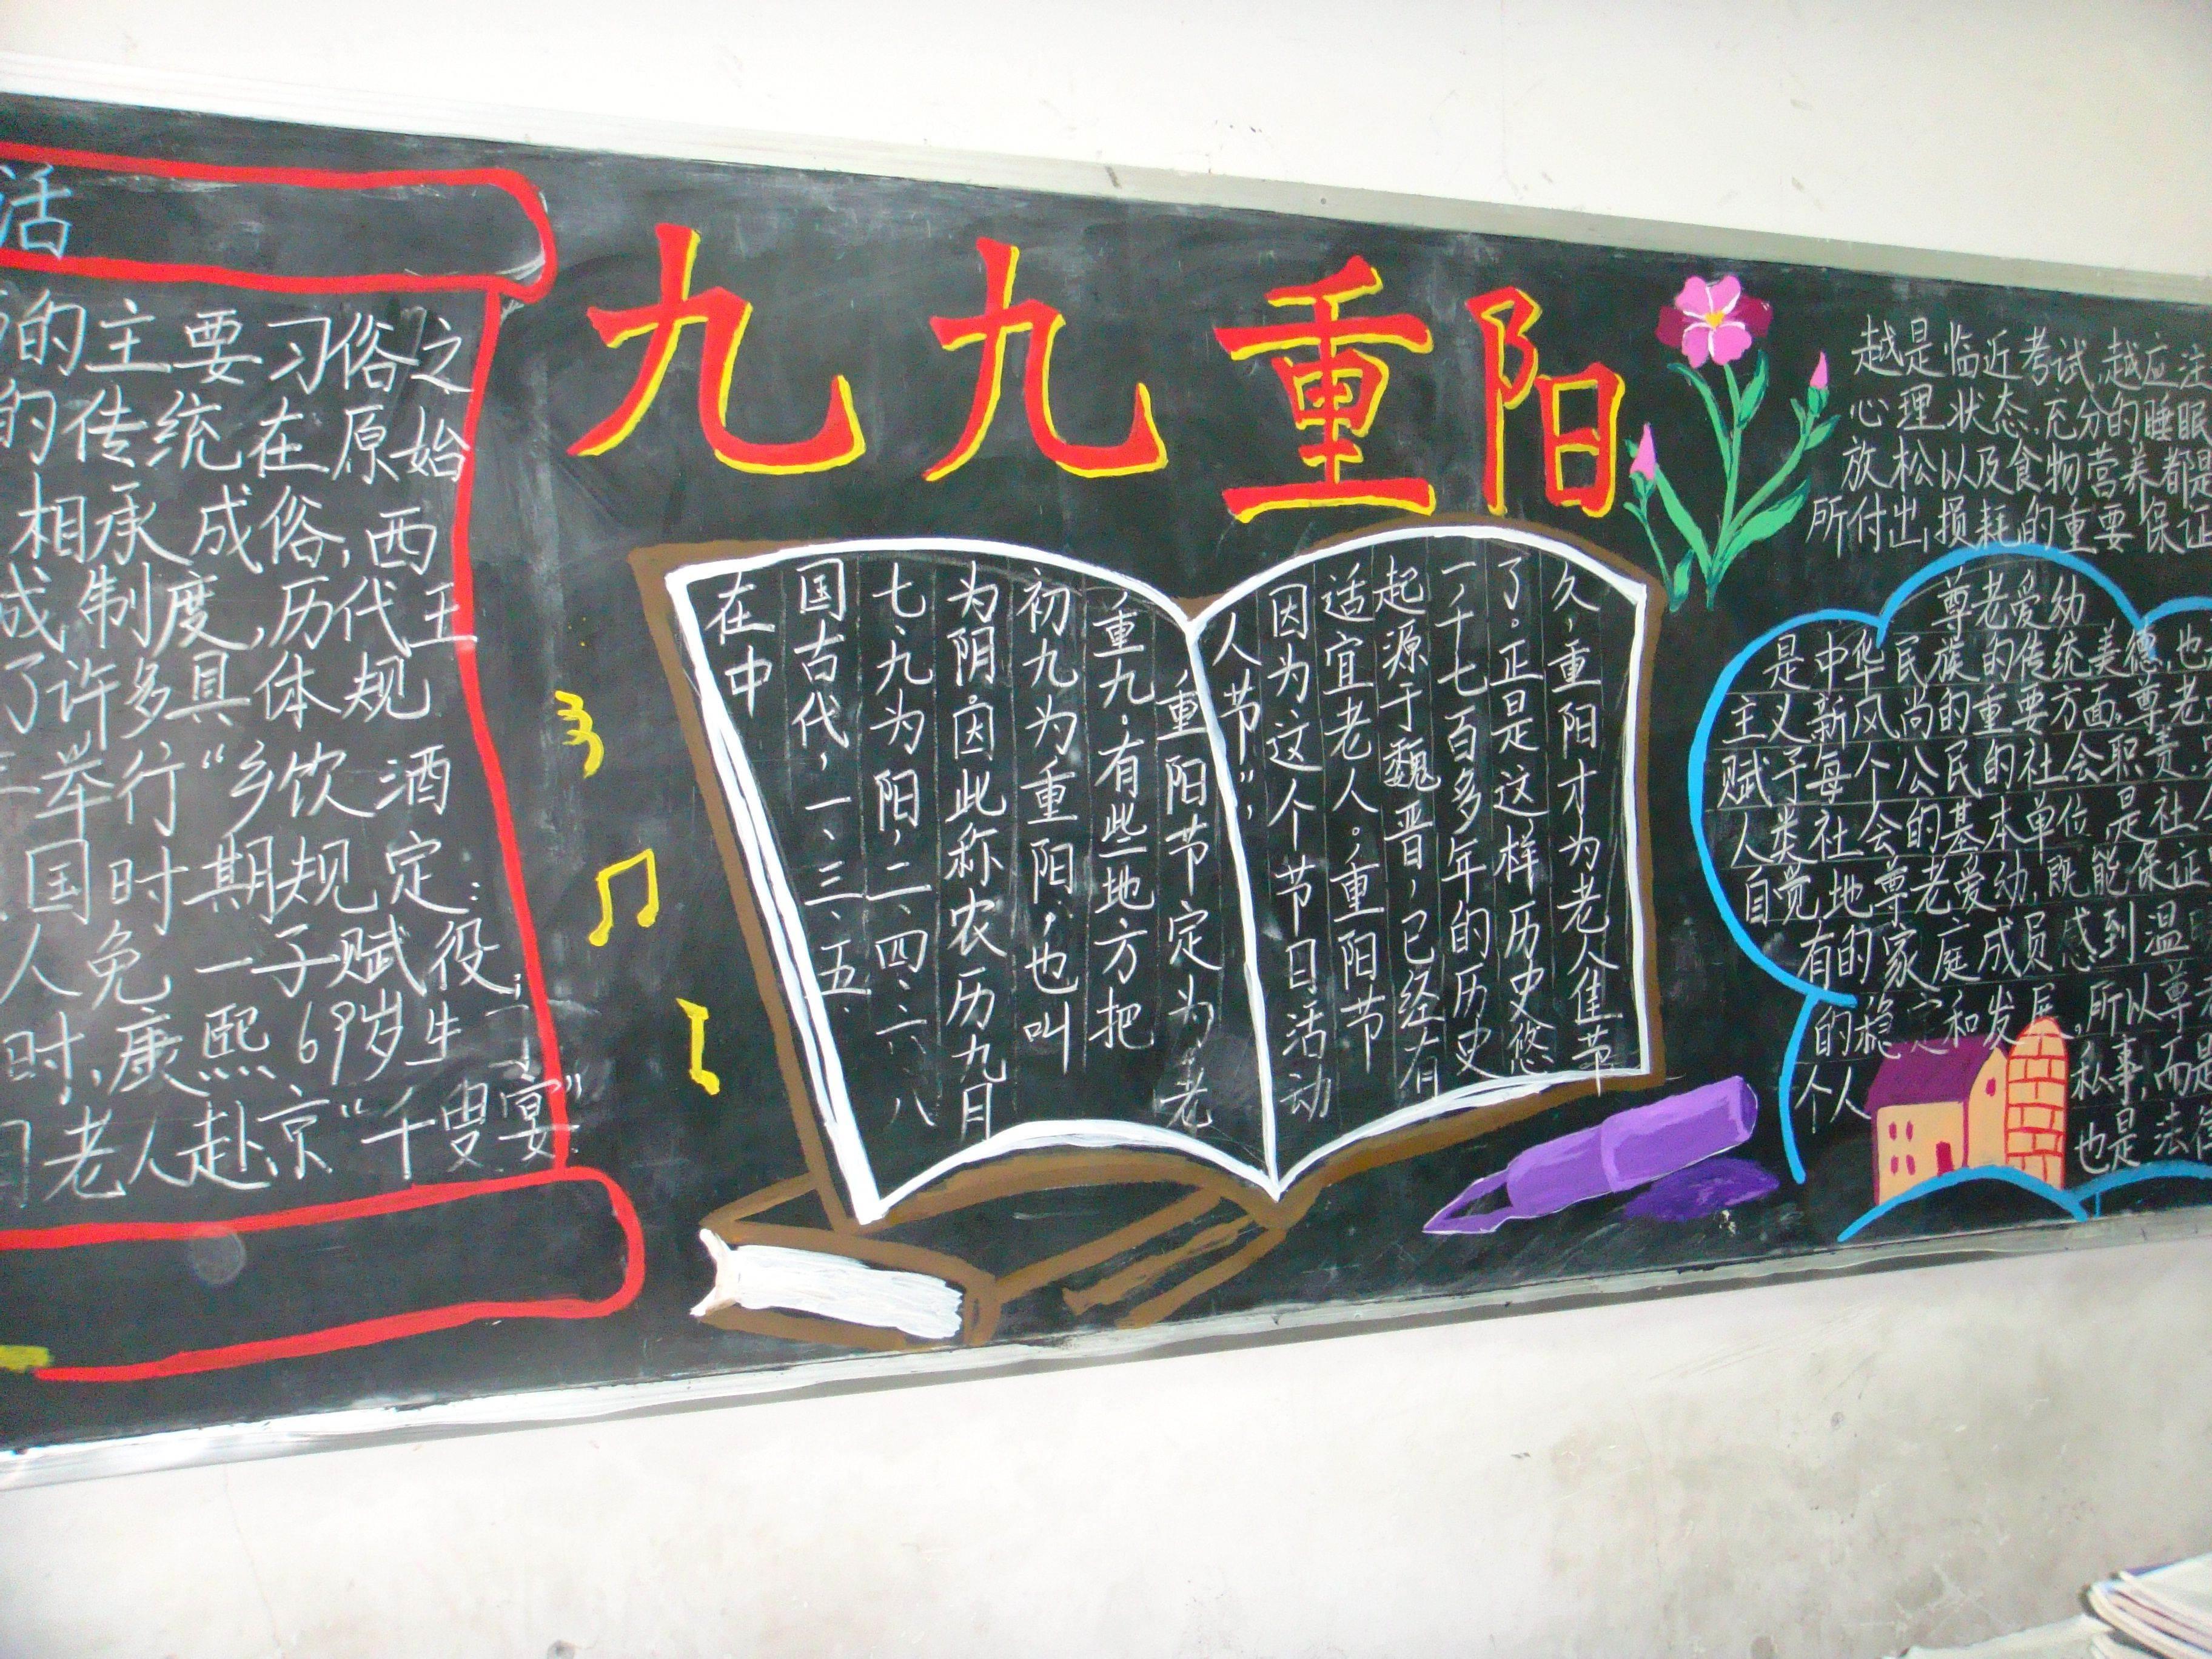 活
的主要习俗之
的传统在原始
相承成俗,西
成制度,历代王
了许多具体规
举行“乡饮酒
国时期规定:
人免一子赋役;
时,康熙69岁生
老人赴京“千叟宴”
九九重阳
在中
国古代,一、三、五.
七、九为阳,二、四、六、八
为阴.因此称农历九月
初九为重阳,也叫
“重九.有些地方把
“重阳节定为“老
人节”,
因为这个节日活动
适宜老人。重阳节
起源于魏晋,已经有
一千七百多年的历史
了。正是这样历史悠
久,重阳才为老人佳节
越是临近考试,越应注
心理状态,充分的睡眠
放松以及食物营养都是
所付出,损耗的重要保证
尊老爱幼
是中华民族的传统美德,也
主义新风尚的重要方面,尊老
赋予每个公民的社会职责.
人类社会的基本单位,是社
自觉地尊老爱幼,既能保证
有的家庭成员感到温
的稳定和发展,所以尊
个人私事,而是
也是法律